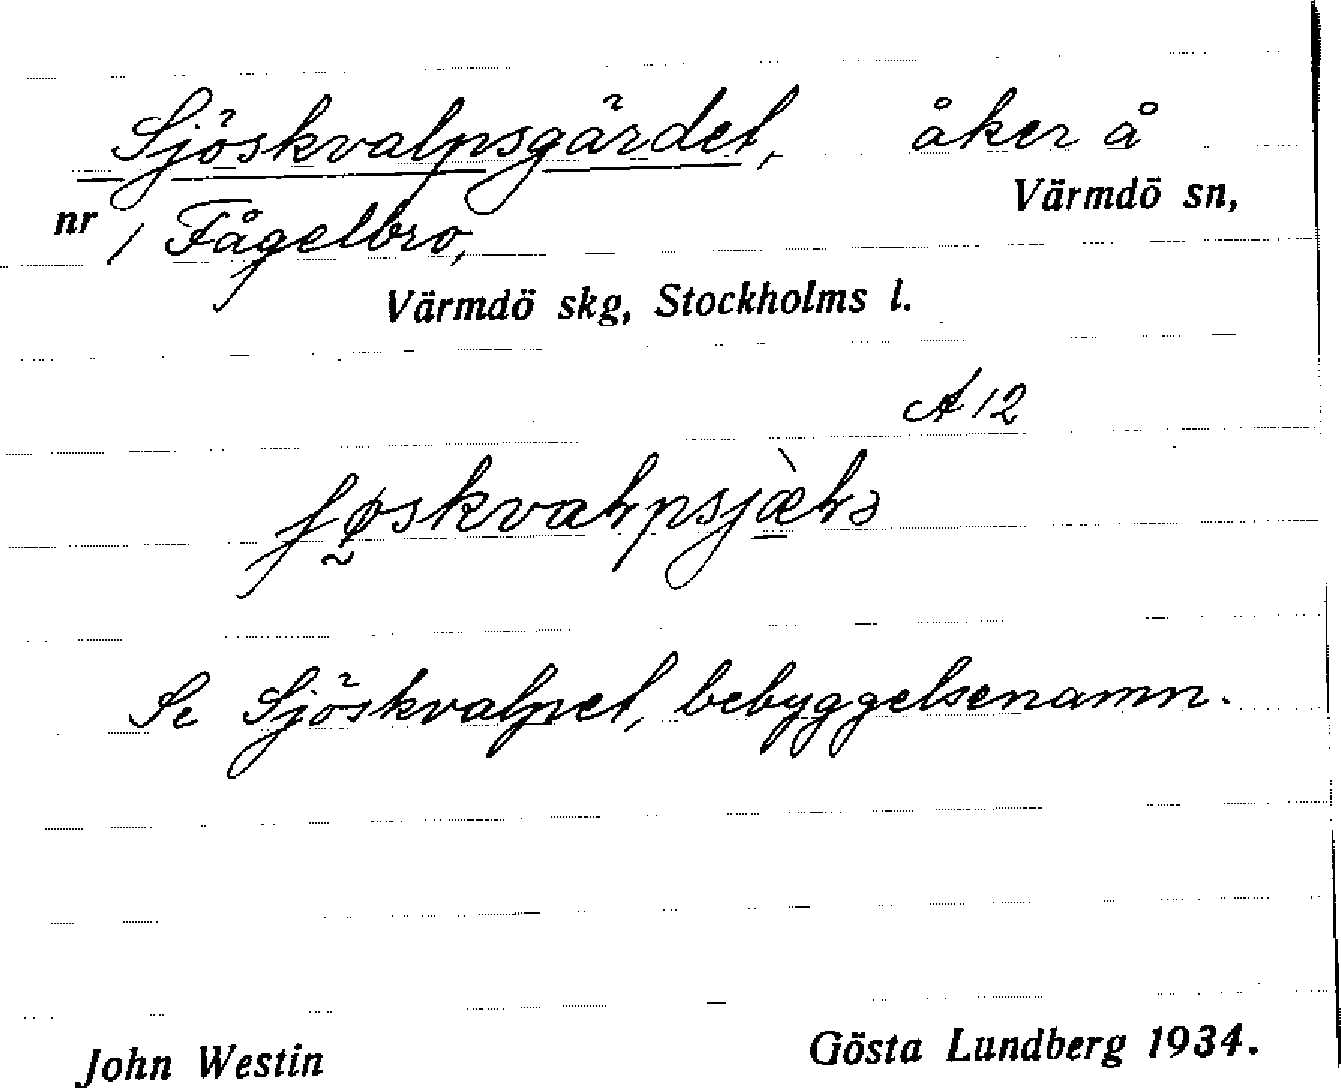 Sjöskvalpsgärdet, åker å
Värmdö sn,
nr 1 Fågelbro,
Värmdö skg, Stockholms l.
A 12
Se Sjöskvalpet, bebyggelsenamn.
John Westin Gösta Lundberg 1934.